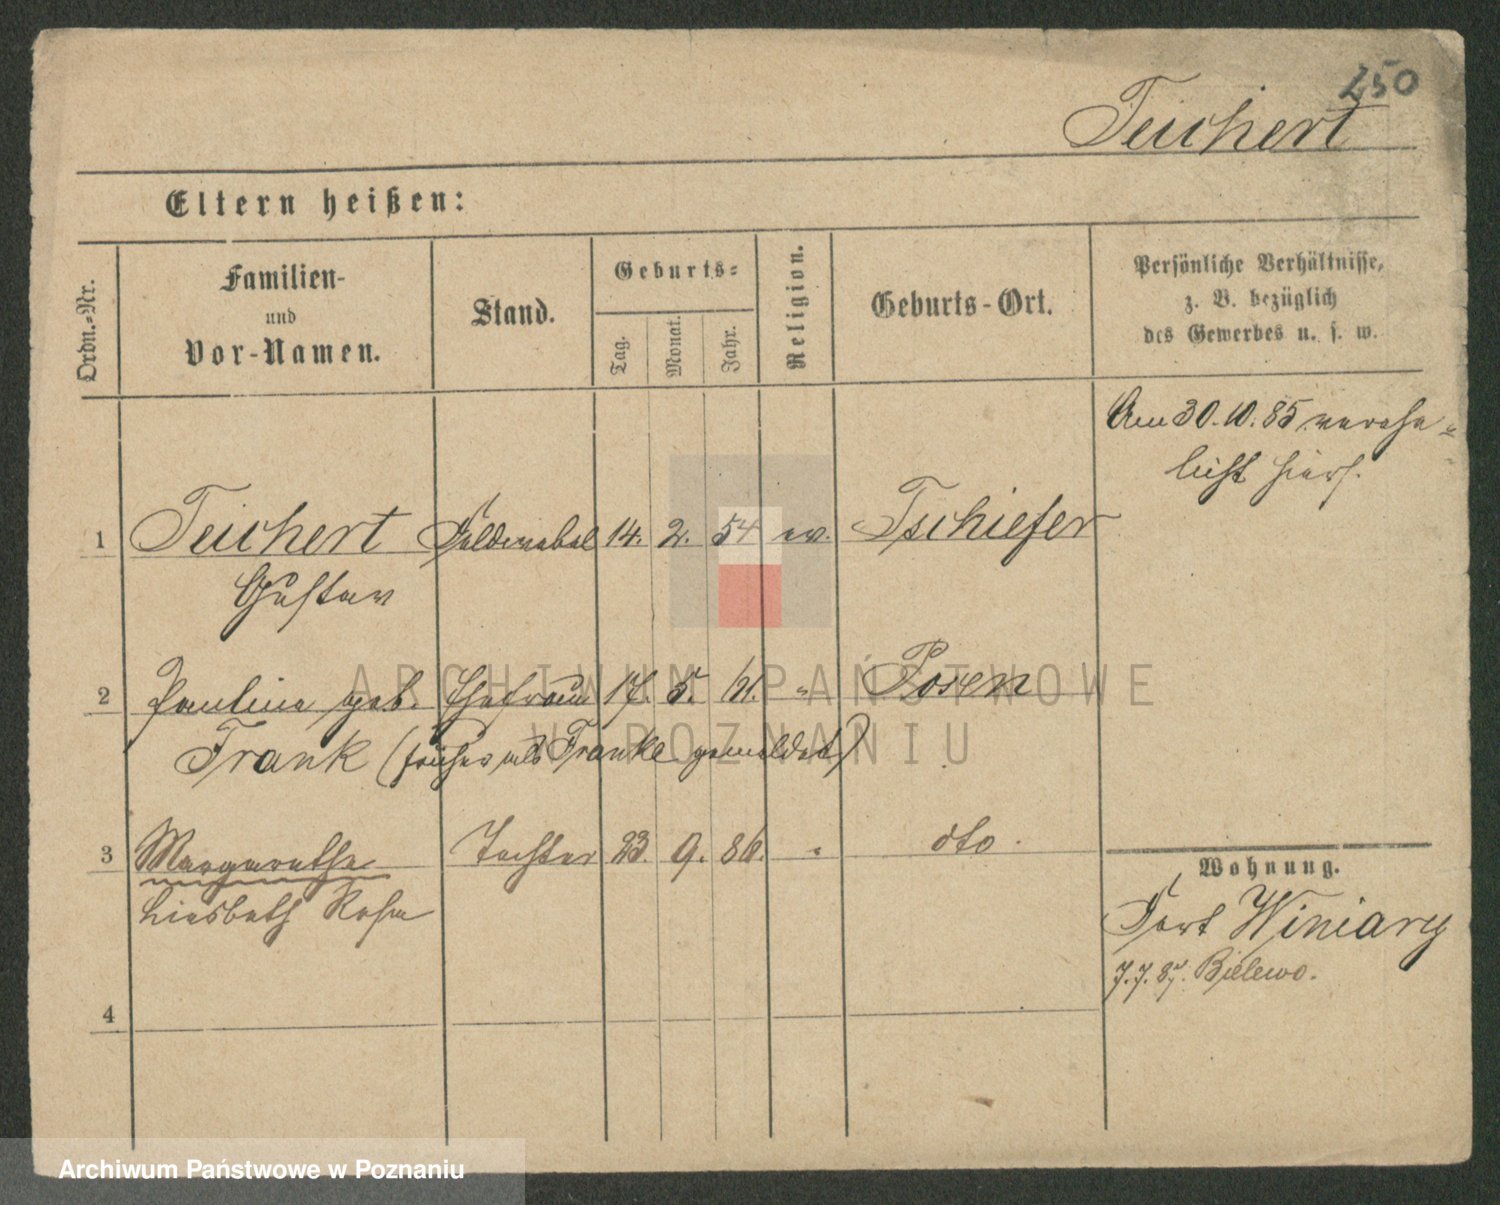 250
Teichert
Eltern heißen:
Ordn.-Nr.
Familien-
und
Vor-Namen.
Stand.
Geburts-
Tag.
Monat.
Jahr.
Religion.
Geburts-Ort.
Persönliche Verhältnisse,
z. B. bezüglich
des Gewerbes u. s. w.
Am 30.10.85 verehe-
licht hiers.
1 Teichert Feldwebel 14. 2. 54 ev. Tschiefer
Gustav
2 Pauline geb. Ehefrau 17. 5. 61. " Posen
Frank (früher als Franke gemeldet)
3 Margarethe Tochter 23. 9. 86. " dto.
Liesbeth Rosa
Wohnung.
Fort Winiary
7.7.87. Bielewo.
4
ARCHIWUM PAŃSTWOWE
W POZNANIU
Archiwum Państwowe w Poznaniu